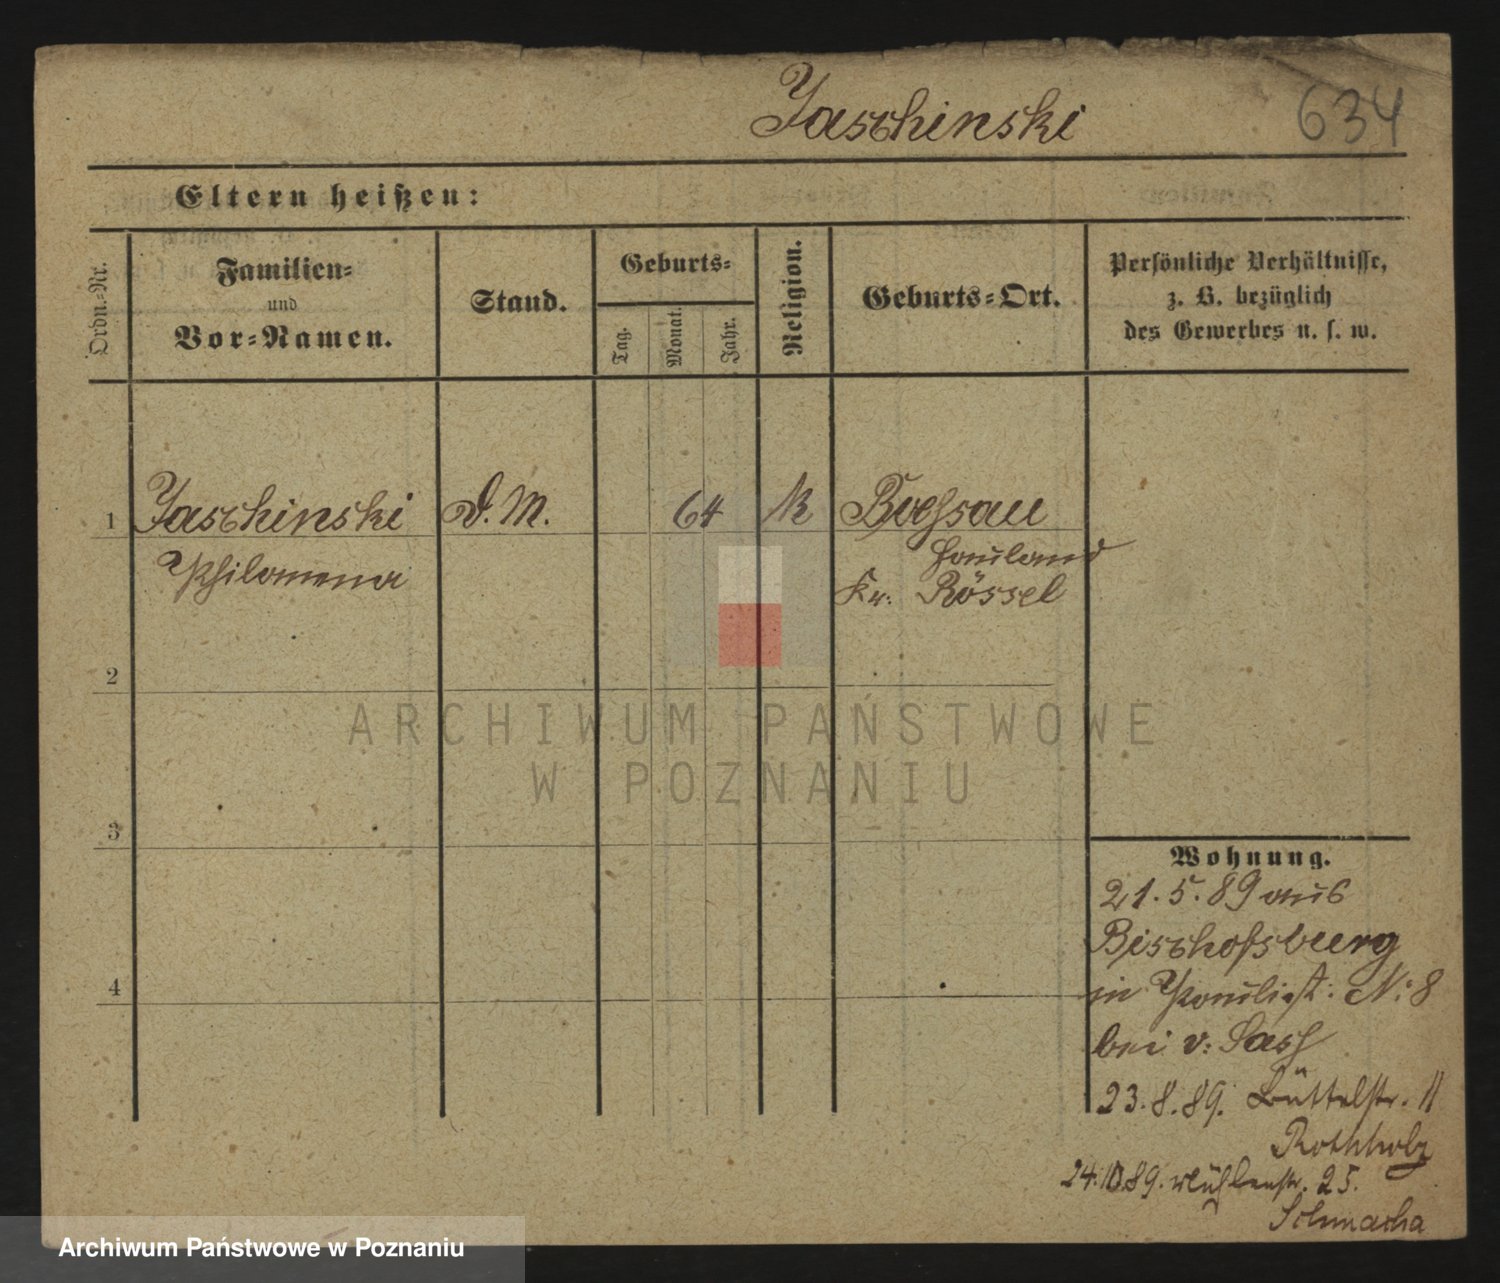 Jaschinski
634
Eltern heißen:
Ordn.-Nr.
Familien-
und
Vor-Namen.
Stand.
Geburts-
Tag.
Monat.
Jahr.
Religion.
Geburts-Ort.
Persönliche Verhältnisse,
z. B. bezüglich
des Gewerbes u. s. w.
1 Jaschinski D. M. 64 K Boessau
Philomena
Kr. Rössel
2
3
4
Wohnung.
21.5.89 aus
Bischofsburg
in Paulist. No 8
bei v.
23.8.89. Büttelstr. 11
Rothholz
24.10.89. Mühlenstr. 25.
Schmacha
ARCHIWUM PAŃSTWOWE
W POZNANIU
Archiwum Państwowe w Poznaniu